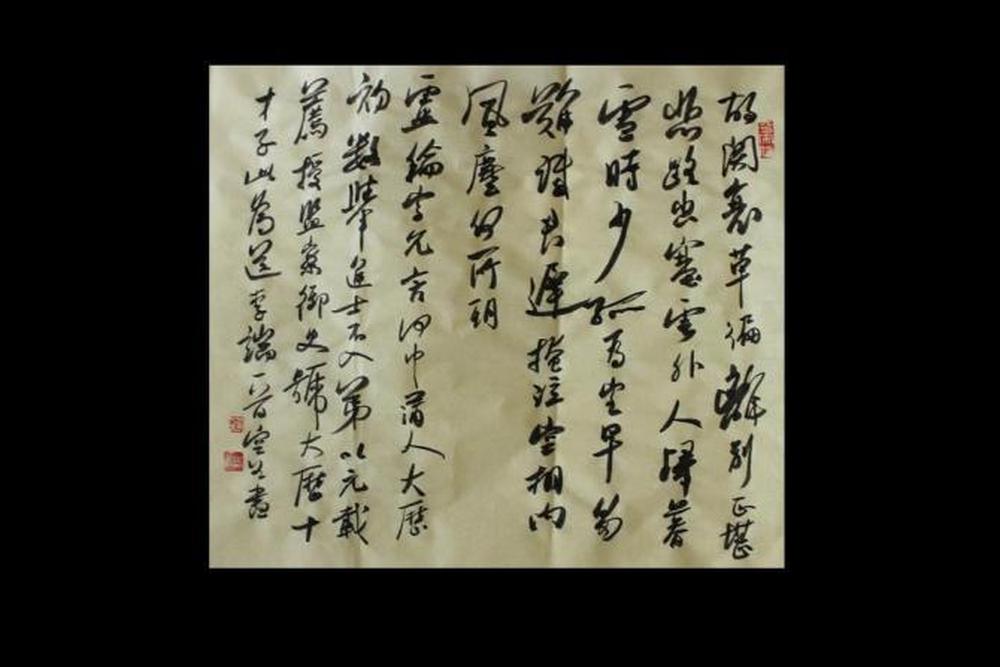 故関衰草徧離別正堪
悲路出寒雲外人歸暮
雪時少孤為客早多
難識君遲掩泣空相向
風塵何所期
盧綸字允言河中蒲人大歷
初數舉進士不入第以元載
薦授監察御史號大歷十
才子此為送李端一首空公書